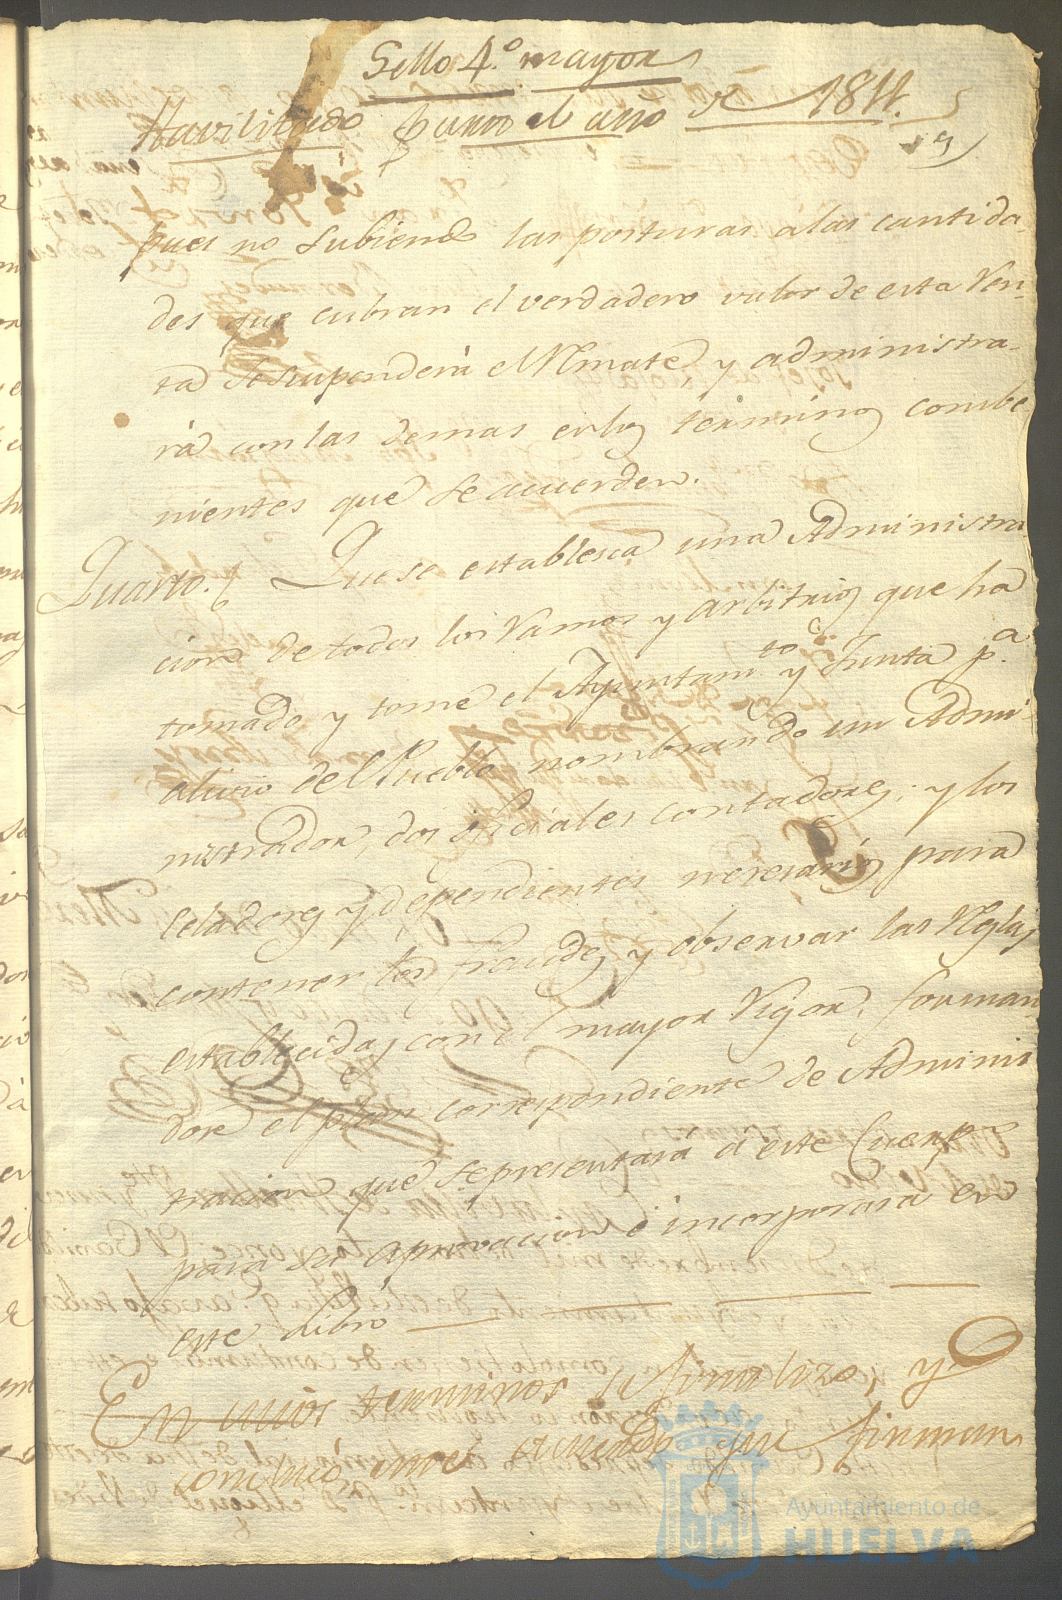 Sello 4.º mayor
Havilitado para el año de 1811.
pues no subiendo las posturas alas cantida
des que cubran el verdadero valor de esta Ren
ta se suspenderá el Rmate y administra
rá con las demas en los terminos combe
nientes que se acuerden.
Quarto. Que se establesca una Administra
cion de todos los Ramos y arbitrios que ha
tomado y tome el Ayuntamto y Junta pa
alivio del Pueblo nombrando un Admi
nistrador, dos oficiales contadores; y los
Celadores y dependientes necesarios para
contener los fraudes y observar las Reglas
establecidas con el mayor Rigor, forman
dose el plan correspondiente de Adminis
tracion que se presentará á este Cuerpo
para su aprovacion é incorporará en
este Libro
En cuios terminos se finalizó y
concluió este acuerdo que firman
Ayuntamiento de
HUELVA